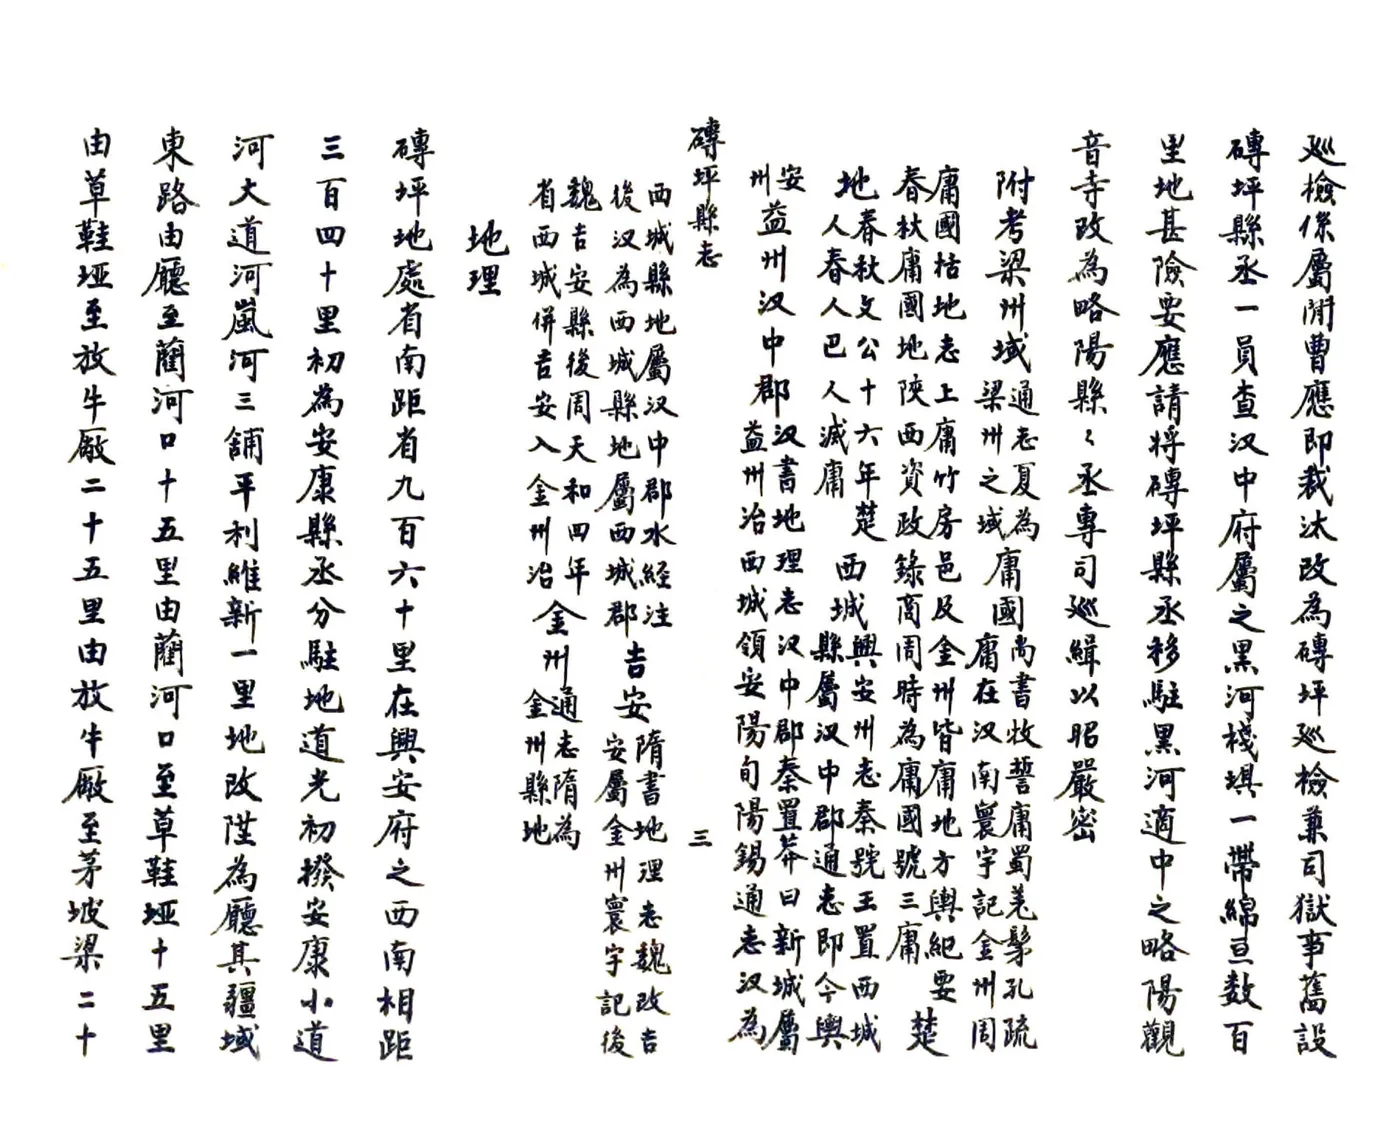 巡檢係屬閒曹應即裁汰改為磚坪巡檢兼司獄事舊設
磚坪縣丞一員查汉中府屬之黑河棧垻一帶綿亘数百
里地甚險要應請將磚坪縣丞移駐黑河適中之略陽觀
音寺改為略陽縣〻丞專司巡緝以昭嚴密
附考梁州域
通志夏為
梁州之域
庸國
尚書牧誓庸蜀羌髳孔疏
庸在汉南寰宇記金州周
庸國枯地志上庸竹房邑及金州皆庸地方輿紀要
春秋庸國地陝西資政錄商周時為庸國號三庸
楚
地
春秋文公十六年楚
人春人巴人滅庸
西城
興安州志秦號王置西城
縣屬汉中郡通志即今興
安
州
益州汉中郡
汉書地理志汉中郡秦置莽曰新城屬
益州治西城領安陽旬陽錫通志汉為
磚坪縣志
三
西城縣地屬汉中郡水经注
後汉為西城縣地屬西城郡
吉安
隋書地理志魏改吉
安屬金州寰宇記後
魏吉安縣後周天和四年
省西城併吉安入金州治
金州
通志隋為
金州縣地
地理
磚坪地處省南距省九百六十里在興安府之西南相距
三百四十里初為安康縣丞分駐地道光初撥安康小道
河大道河嵐河三舖平利維新一里地改陞為廳其疆域
東路由廳至藺河口十五里由藺河口至草鞋埡十五里
由草鞋埡至放牛厰二十五里由放牛厰至茅坡梁二十